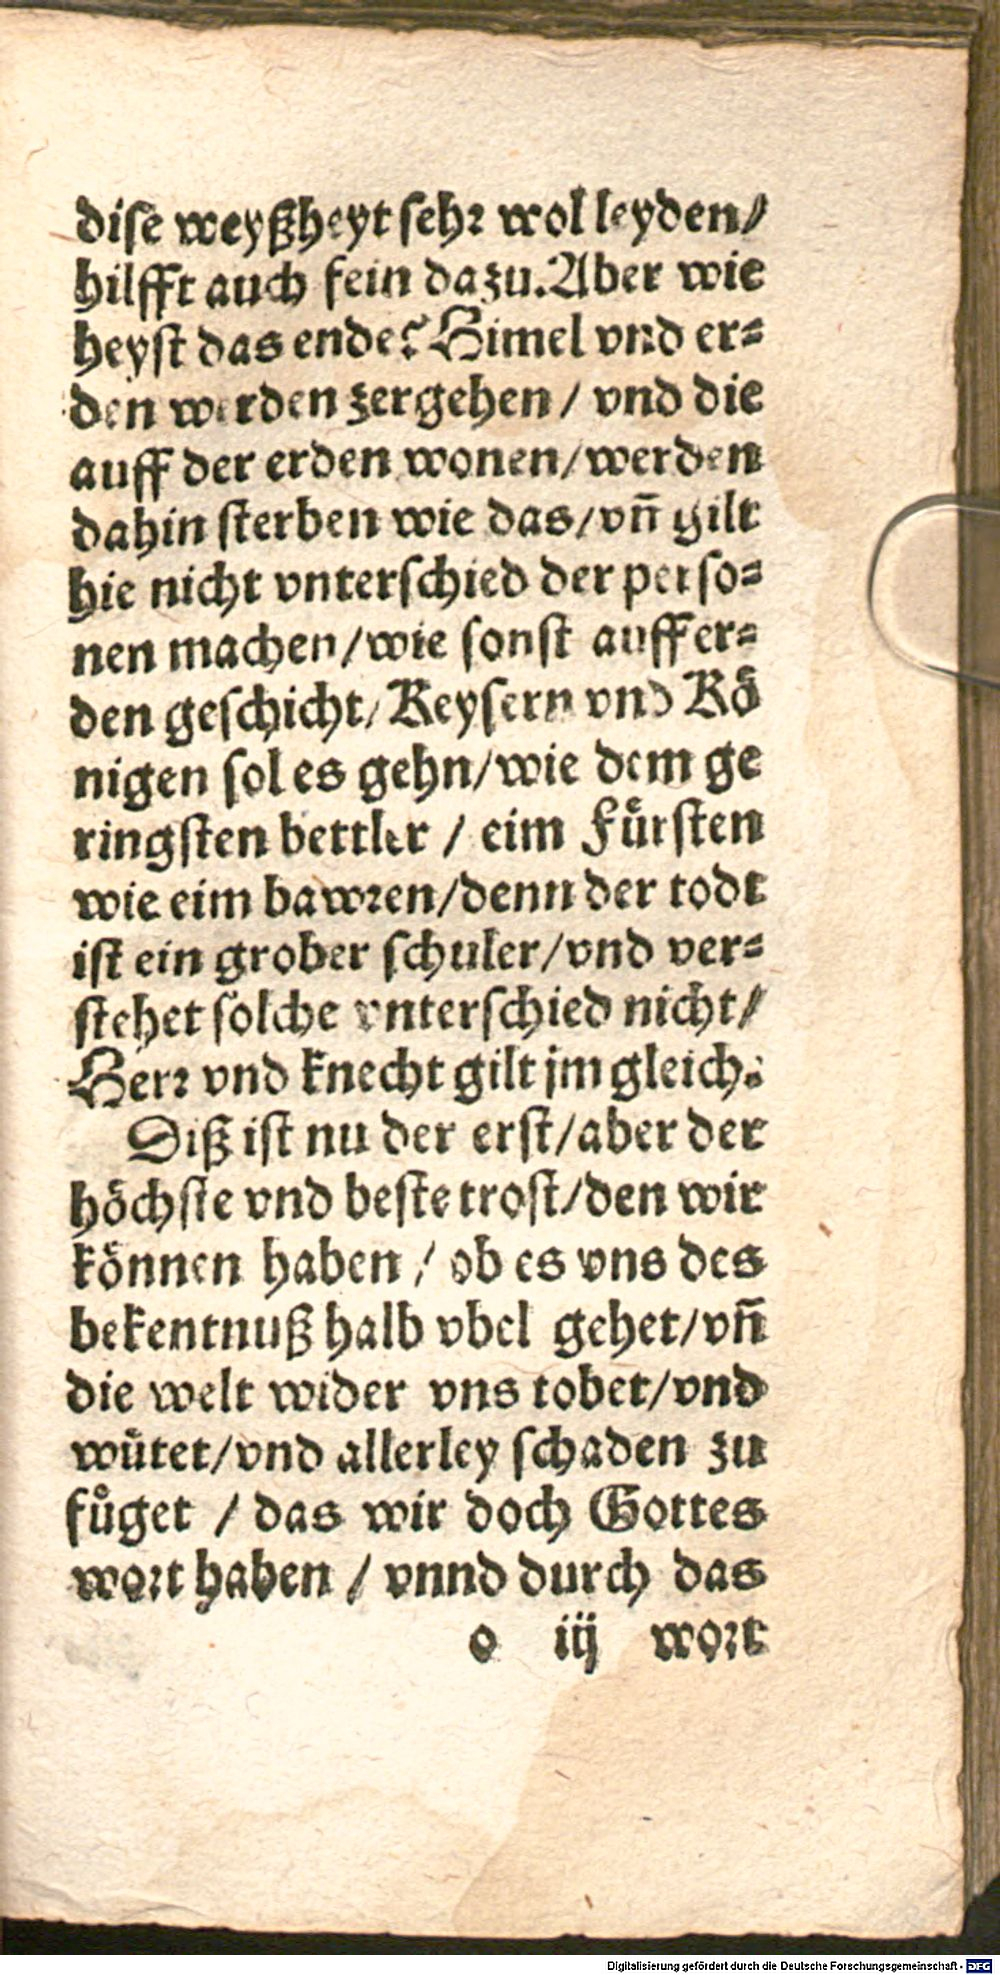 dise weyßheyt sehr wol leyden/
hilfft auch fein dazu. Aber wie
heyst das ende? Himel vnd er⸗
den werden zergehen / vnd die
auff der erden wonen/werden
dahin sterben wie das/vn̄ gilt
hie nicht vnterschied der perso⸗
nen machen/wie sonst auff er⸗
den geschicht/ Keysern vnd Kö
nigen sol es gehn/wie dem ge
ringsten bettler / eim Fürsten
wie eim bawren/denn der todt
ist ein grober schuler/vnd ver⸗
stehet solche vnterschied nicht/
Herr vnd knecht gilt jm gleich.
Diß ist nu der erst/aber der
höchste vnd beste trost/den wir
können haben / ob es vns des
bekentnuß halb vbel gehet/vn̄
die welt wider vns tobet/vnd
wütet/vnd allerley schaden zu
fůget / das wir doch Gottes
wort haben / vnnd durch das
o iij wort
Digitalisierung gefördert durch die Deutsche Forschungsgemeinschaft - DFG